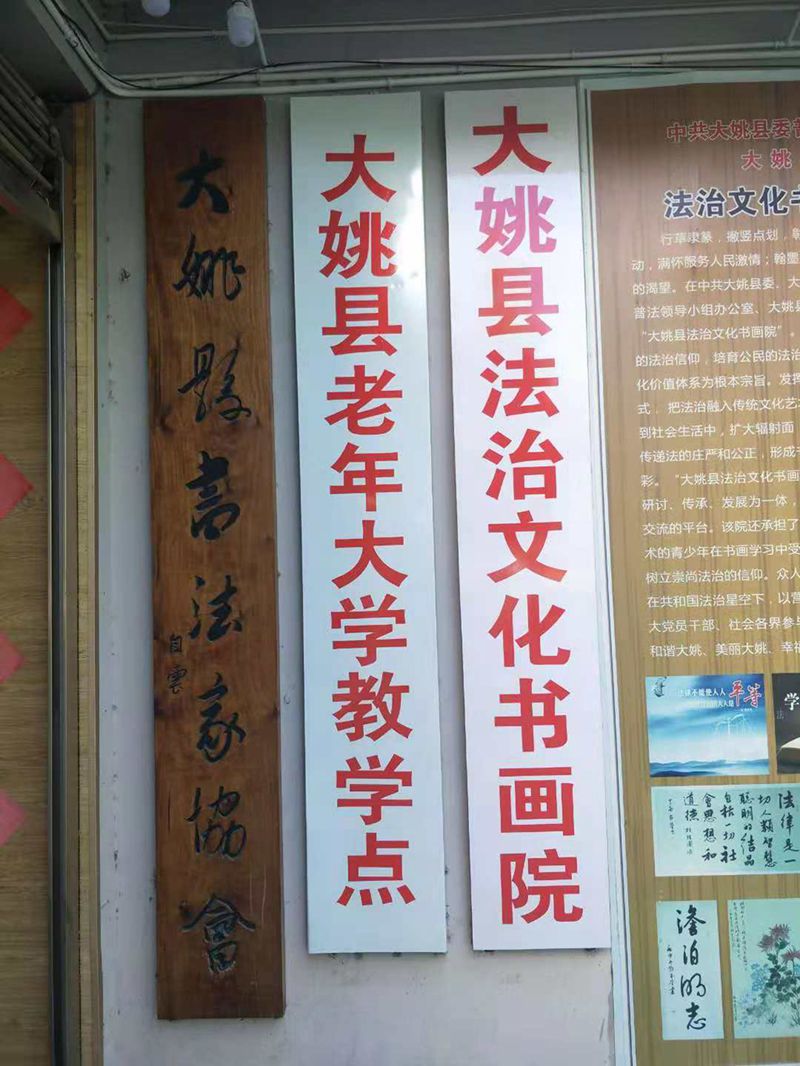 大姚縣書法家協會
自雲
大姚县老年大学教学点
大姚县法治文化书画院
中共大姚县委
大姚
法治文化书
行草隶篆,撇竖点划,
动,满怀服务人民激情;翰墨
的渴望。在中共大姚县委、大
普法领导小组办公室、大姚县
“大姚县法治文化书画院”。
的法治信仰,培育公民的法治
化价值体系为根本宗旨。发挥
式,把法治融入传统文化艺
到社会生活中,扩大辐射面
传递法的庄严和公正,形成
彩。“大姚县法治文化书画
研讨、传承、发展为一体,
交流的平台。该院还承担了
术的青少年在书画学习中受
树立崇尚法治的信仰。众人
在共和国法治星空下,以营
大党员干部、社会各界参与
和谐大姚、美丽大姚、幸福
法律不能使人人
平等
学
法
法律是一
切人类智慧
聪明的结晶
自括一切社
會思想和
道德
澹泊明志